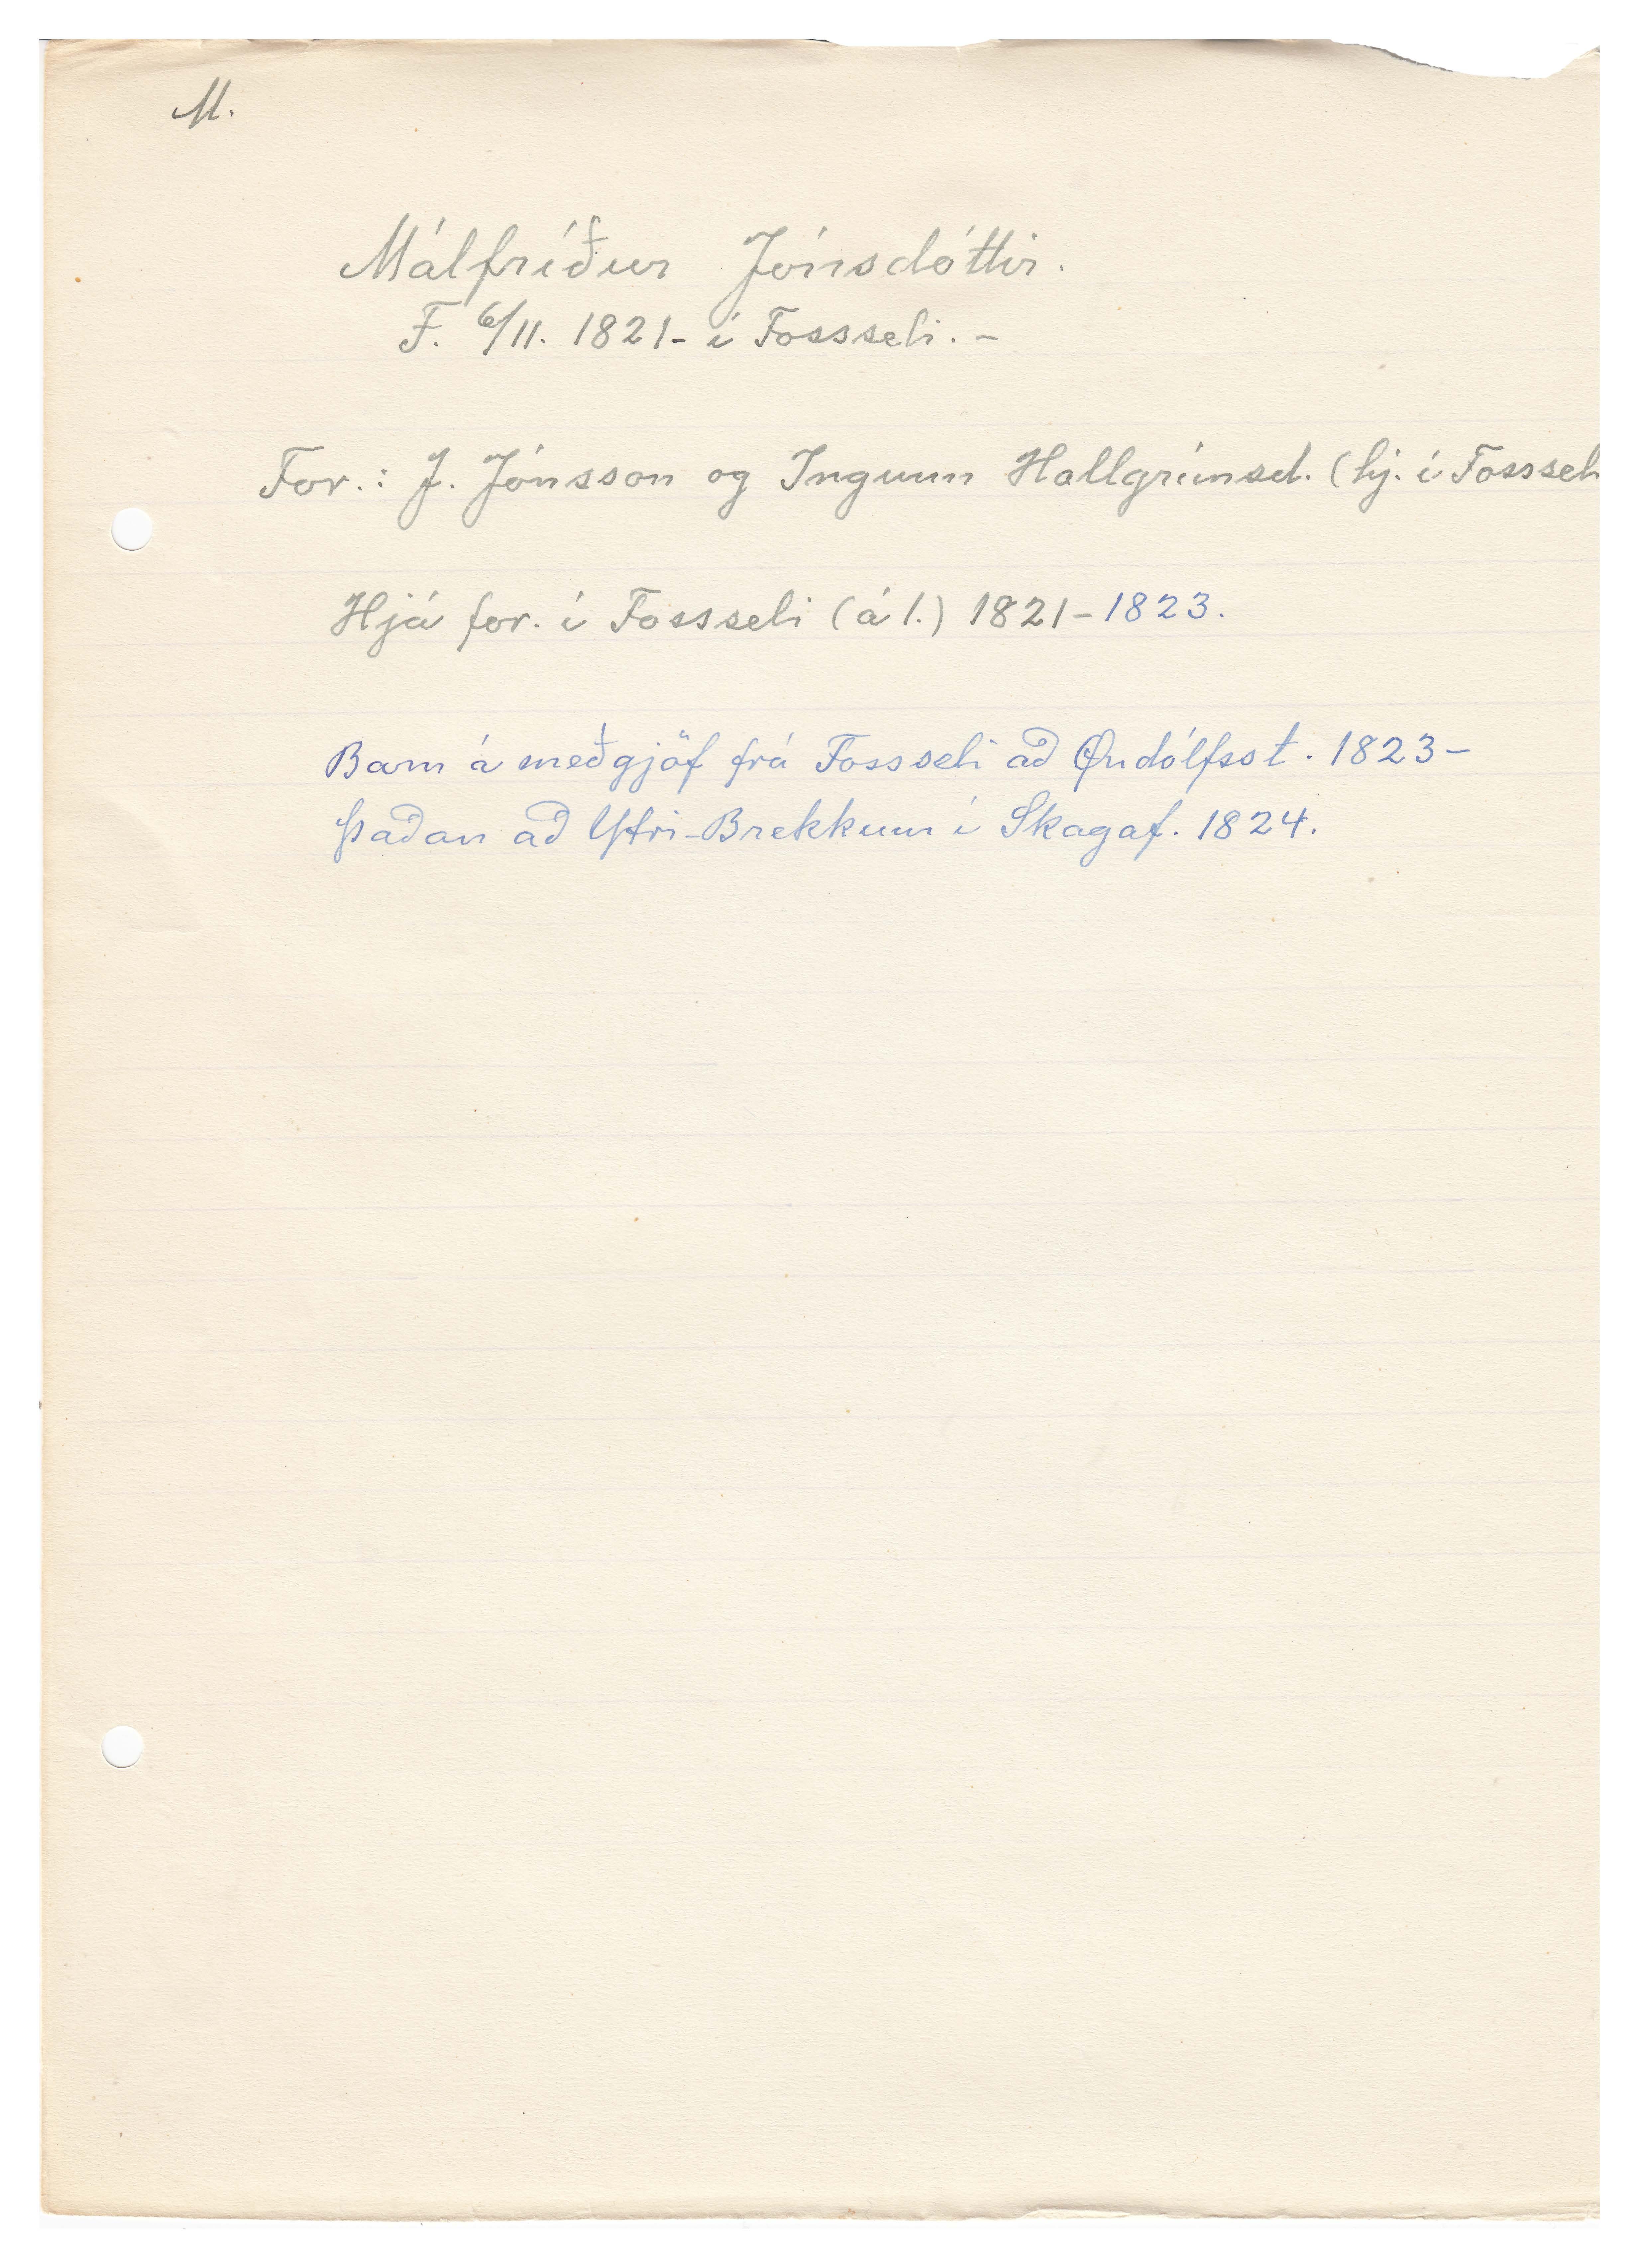 M.
Málfríður Jónsdóttir.
F. 6/11. 1821- í Fossseli. -
For.: J. Jónsson og Ingunn Hallgrímsd. (hj. í Fossseli
Hjá for. í Fossseli (á 1.) 1821-1823.
Barn á meðgjöf frá Fossseli að Öndólfsst. 1823-
þaðan að Ytri-Brekkum í Skagaf. 1824.